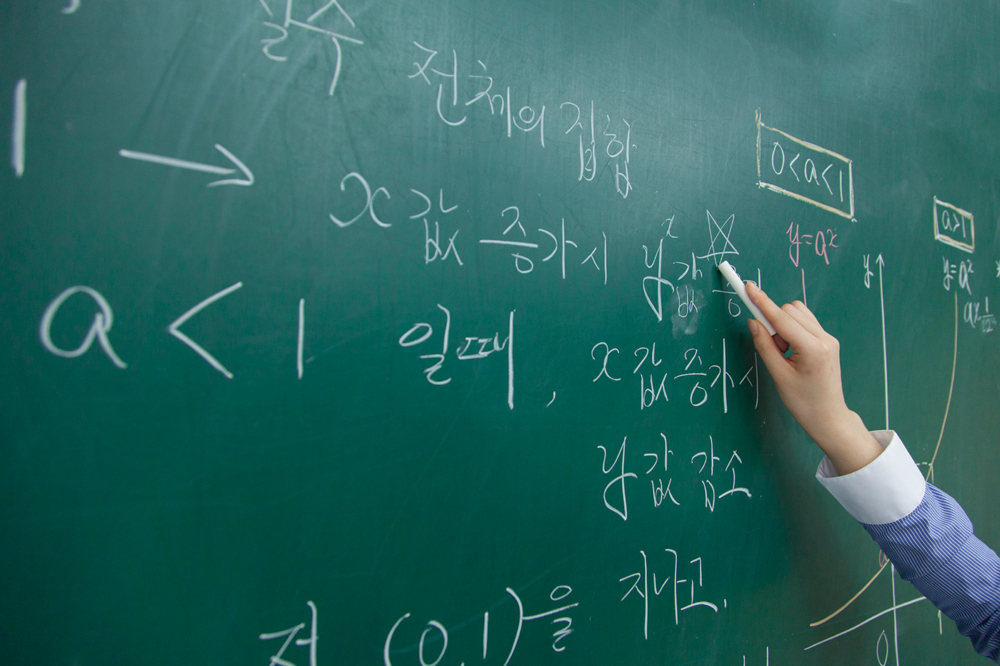 실수 전체의 집합
1 → x값 증가시 y값 증
a < 1 일때, x값 증가시
y값 감소
점 (0,1)을 지나고,
0<a<1
y=aˣ
a>1
y=aˣ
y
0